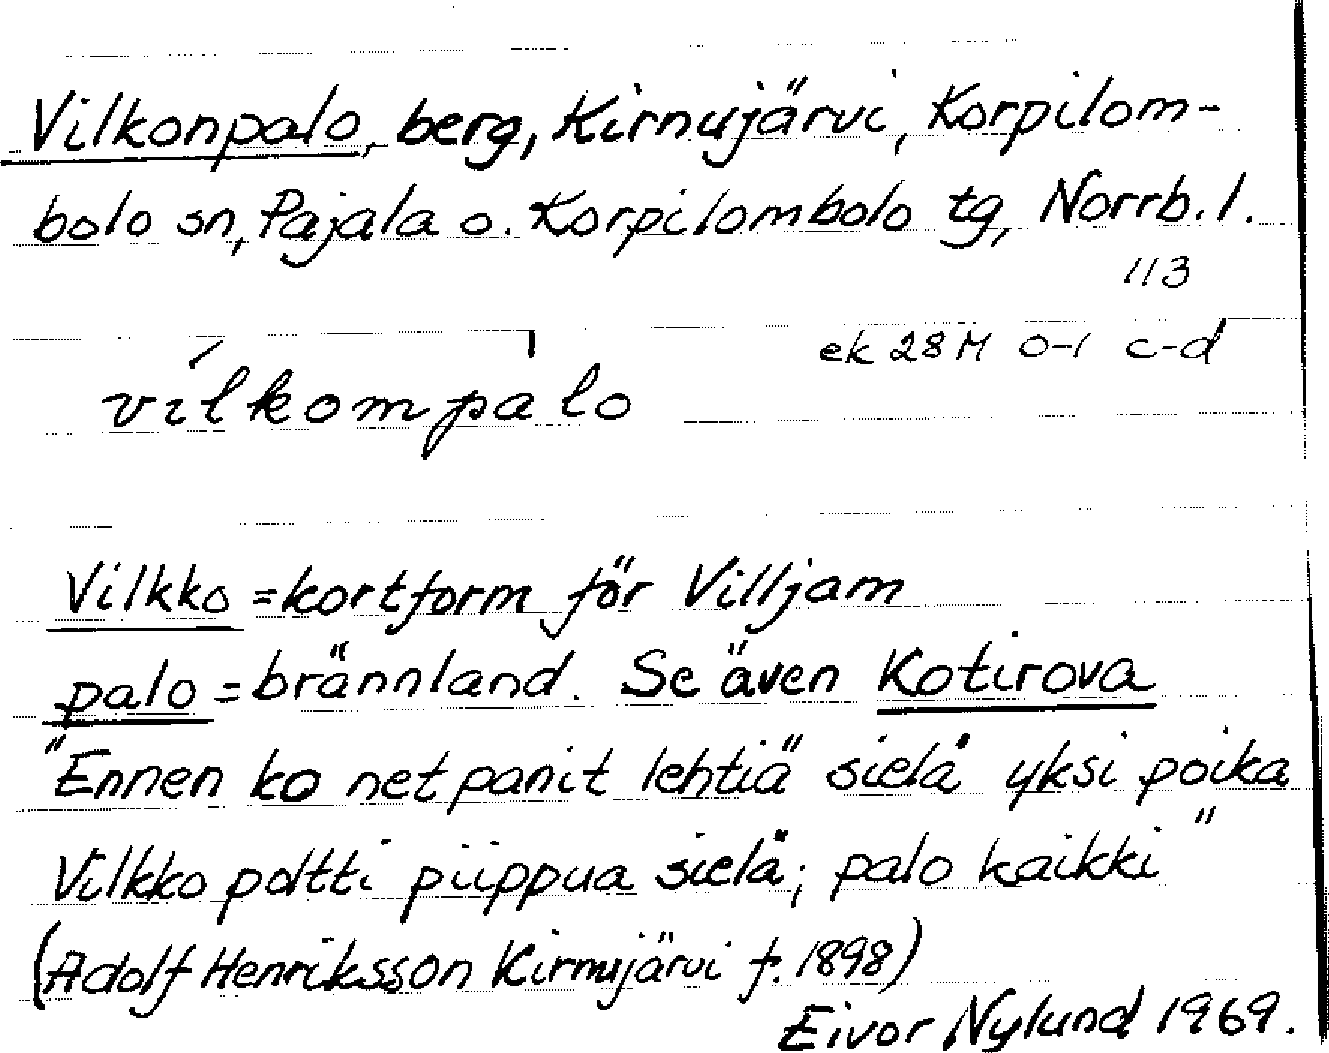 Vilkonpalo, berg, Kirnujärvi, Korpilom-
bolo sn, Pajala o. Korpilombolo tg, Norrb. l.
113
ek 28 M 0-1 c-d
vílkompàlo
Vilkko = kortform för Villjam
palo = brännland. Se även Kotirova
"Ennen ko net panit lehtiä sielä yksi poika
Vilkko poltti piippua sielä; palo kaikki"
(Adolf Henriksson Kirnujärvi f. 1898)
Eivor Nylund 1969.